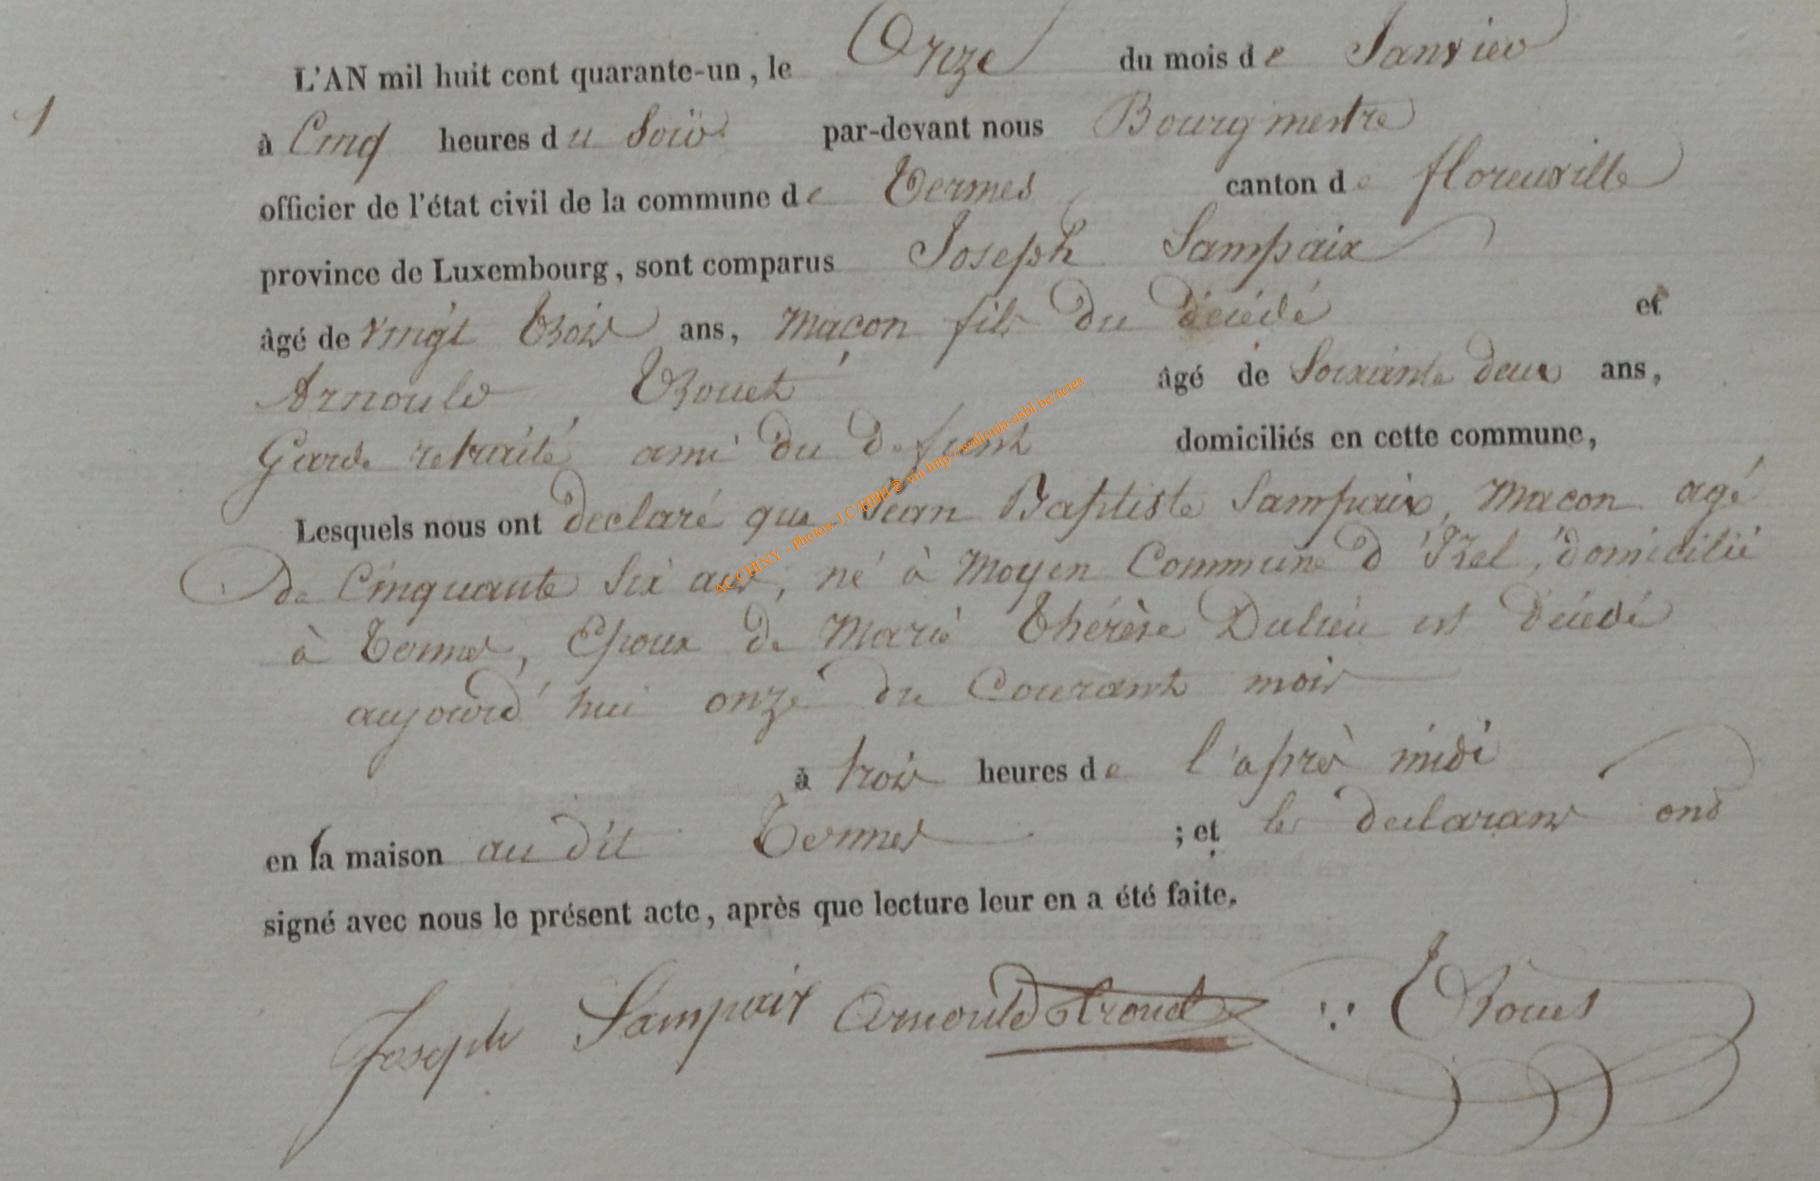 L'AN mil huit cent quarante-un, le Onze du mois de Janvier
1
à Cinq heures du Soir par-devant nous Bourgmestre
officier de l'état civil de la commune de Termes canton de florenville
province de Luxembourg, sont comparus Joseph Sampaix
âgé de vingt trois ans, maçon fils du décédé et
Arnould Trouet âgé de Soixante deux ans,
Garde retraité ami du defunt domiciliés en cette commune,
Lesquels nous ont declaré que Jean Baptiste Sampaix, macon agé
de Cinquante Six ans, né à Moyen Commune d'Izel, domicilié
à Termes, Epoux de Marie Thérèse Dulieu est décédé
aujourd'hui onze du Courant mois
à trois heures de l'après midi
en la maison au dit Termes ; et les declarans ont
signé avec nous le présent acte, après que lecture leur en a été faite.
Joseph Sampaix Arnould trouet